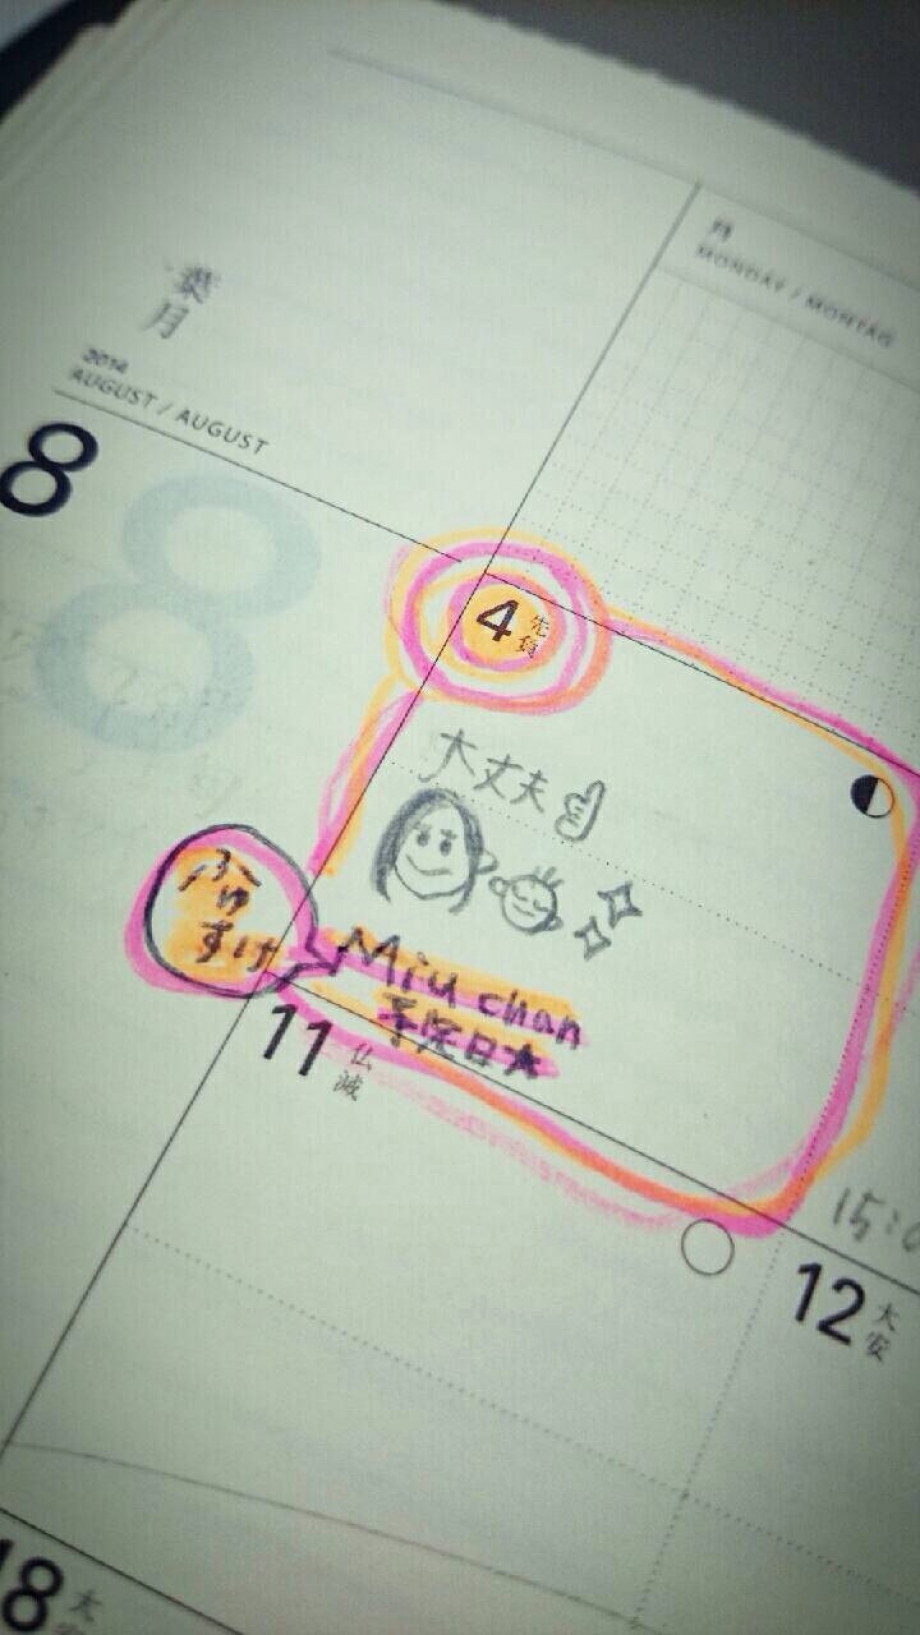 葉月
2014
AUGUST / AUGUST
8
8
月
MONDAY / MONTAG
4 先負
大丈夫
ふゆ
すけ
Miu chan
予定日★
11 仏滅
15:0
12 大安
18 大